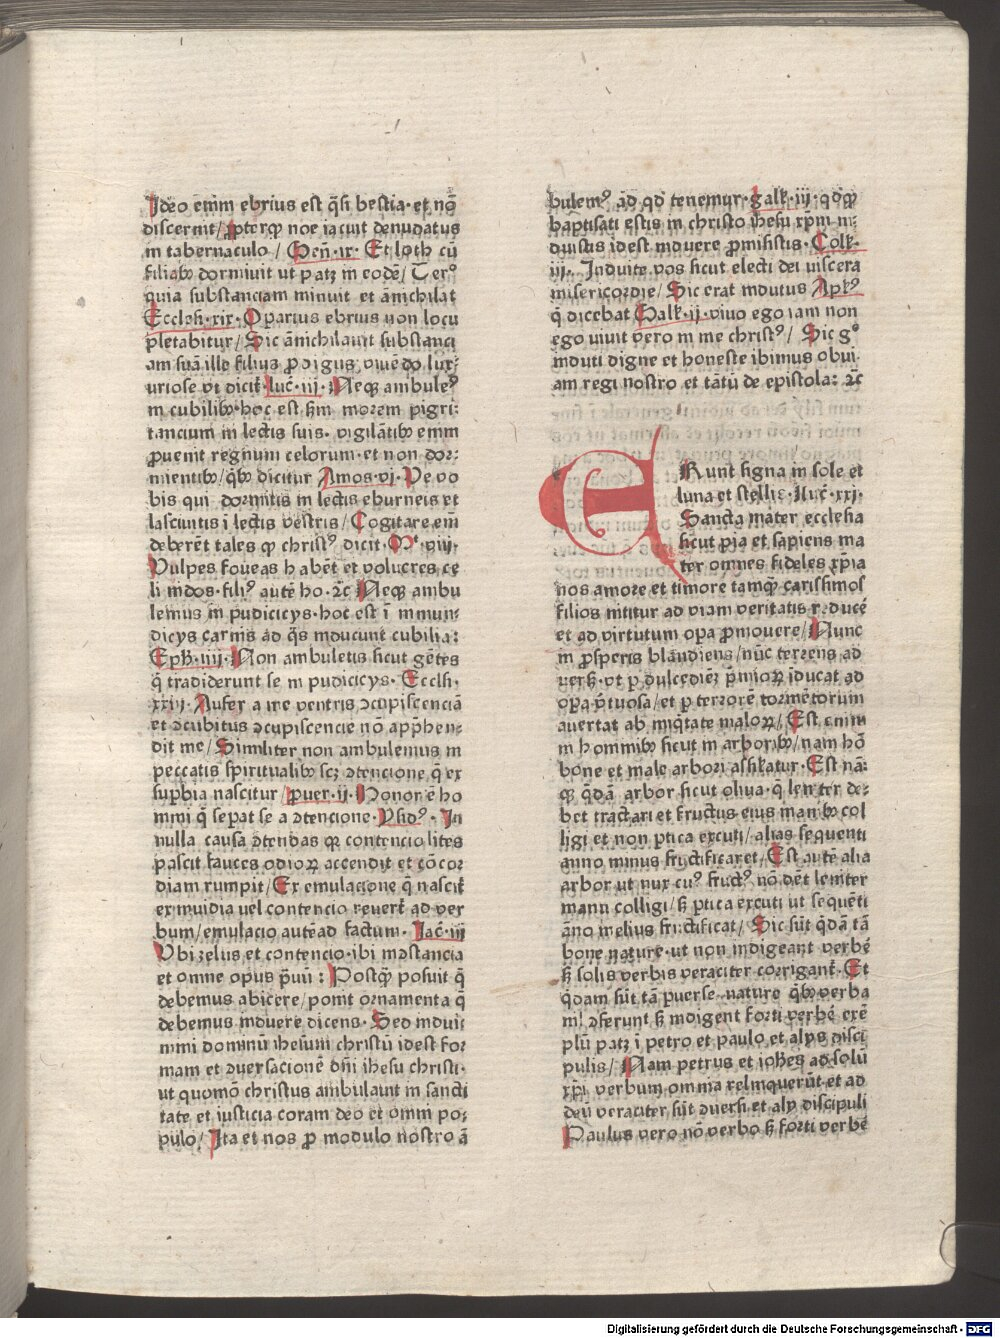 Ideo enim ebrius est q̃si bestia· et nõ
discernit/ ꝓpterqꝫ noe iacuit denudatus
in tabernaculo / Geñ·ix· Et loth cũ
filiabꝰ dormiuit ut patꝫ in eodẽ/ Terꝰ
quia substanciam minuit et ãnichilat
Ecclesi·xix· Operarius ebrius non locu
pletabitur/ Sic ãnichilauit substanci
am suã ille filius ꝓdigus viuẽdo lux-
uriose vt dicit̃ luc̃·iij· : Neqꝫ ambuleꝰ
in cubilibꝰ·hoc est ẜm morem pigri:
tancium in lectis suis· vigilãtibꝰ enim
ꝓuenit regnum celorum· et non dor-
mientibꝰ/ q̃bꝰ dicitur Amos·vi· Ve vo
bis qui dormitis in lectis eburneis et
lasciuitis ĩ lectis vestris/ Cogitare em̃
deberẽt tales ꝙ christꝰ dicit· Mͭ·viij·
Vulpes foueas habẽt et volucres ce
li nidos· filiꝰ autẽ ho· ⁊c̃ Neqꝫ ambu
lemus in pudicicijs· hoc est ĩ immun-
dicijs carnis ad q̃s inducunt cubilia:
Eph̃·iiij· Non ambuletis sicut gẽtes
q̃ tradiderunt se in pudicijs· Ecclesi·
xxiij· Aufer a me ventris ↄcupiscenciã
et ↄcubitus ↄcupiscencie nõ app̃hen-
dit me/ Similiter non ambulemus in
peccatis spiritualibꝰ scꝫ ↄtencione q̃ ex
suꝑbia nascitur / ꝓuer·ij· Honor ẽ ho
mini q̃ seꝑat se a ↄtencione· Ysidꝰ· In
nulla causa ↄtendas qꝫ contencio lites
pascit fauces odioꝝ accendit et cõcor
diam rumpit/ Ex emulacione q̃ nascit̃
ex inuidia uel contencio refert̃ ad ver
bum/ emulacio autẽ ad factum· Iac̃·iij
Vbi zelus et contencio· ibi incõstancia
et omne opus p̃uũ : Postqꝫ posuit q̃
debemus abicere/ ponit ornamenta q̃
debemus induere dicens· Sed induit
mini dominũ ihesum christũ id est for
mam et ↄuersacionẽ dñi ihesu christi·
ut quomõ christus ambulauit in sancti
tate et iusticia coram deo et omni po:
pulo/ Ita et nos ꝓ modulo nostro ã
bulemꝰ ad qd̃ tenemur· galat̃·iij· qd̃qꝫ
baptisati estis in christo ihesu xp̃m in-
duistis id est induere ꝓmisistis· Colt̃·
iij· Induite vos sicut electi dei viscera
misericordie/ Sic erat indutus Aplꝰ
q̃ dicebat Galat̃·ij· viuo ego iam non
ego viuit vero in me christꝰ/ Sic gͦ
induti digne et honeste ibimus obui
am regi nostro et tãtũ de epistola: ⁊c̃
ERunt signa in sole et
luna et stellis· Luc̃·xxj·
Sancta mater ecclesia
sicut pia et sapiens ma
ter omnes fideles xp̃ia
nos amore et timore tamqꝫ carissimos
filios nititur ad viam veritatis reducẽ
et ad virtutum oꝑa ꝓmouere/ Nunc
in ꝓsperis blandiens/ nũc terrens ad
uersꝭ· vt ꝑ dulcediẽꝫ p̃mioꝝ iducat ad
oꝑa ṽtuosa/ et ꝑ terrorẽ tormẽtorum
auertat ab iniq̃tate maloꝝ/ Est enim
in hominibꝰ sicut in arboribꝰ/ nam hõ
bone et male arbori assil̃atur· Est nã:
qꝫ q̃dã arbor sicut oliua· q̃ leniter de-
bet tractari et fructus eius manibꝰ col
ligi et non ꝑtica excuti/ alias sequenti
anno minus fructificaret/ Est autẽ alia
arbor ut nux cuiꝰ fructꝰ nõ dẽt leniter
manu colligi/ ẜ ꝑtica excuti ut sequẽti
ãno melius fructificat/ Sic sũt q̃dã tã
bone nature· ut non indigeant verbẽ
ẜ solis verbis veraciter corrigant̃· Et
q̃dam sũt tã ꝑuerse nature q̃bꝰ verba
nil ↄferunt ẜ indigent forti verbẽ exẽ
plũ patꝫ ĩ petro et paulo et alijs disci
pulis/ Nam petrus et ioh̃es ad solũ
xp̃i verbum omnia relinquerũt et ad
deũ veraciter sũt ↄuersi et alij discipuli
Paulus vero nõ verbo ẜ forti verbẽ
Digitalisierung gefördert durch die Deutsche Forschungsgemeinschaft - DFG